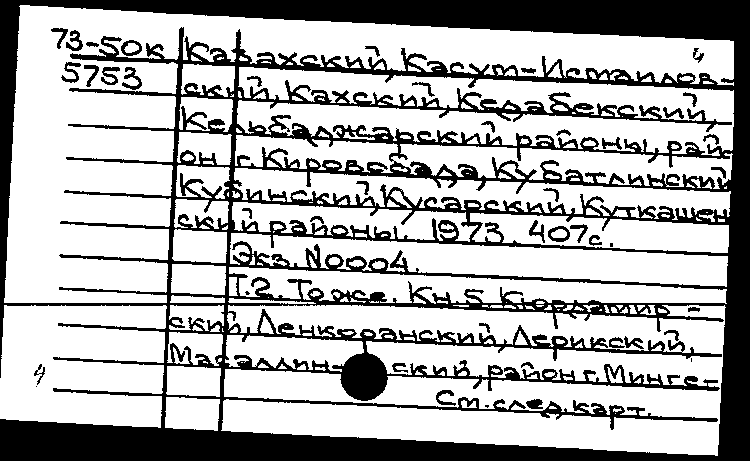 73-50к Казахский, Касум-Исмаилов-
5753 ский, Кахский, Кедабекский,
Кельбаджарский районы, рай-
он г. Кировобада, Кубатлинский
Кубинский, Кусарский, Куткашен
ский районы. 1973. 407с.
Экз. N0004.
Т.2. То же. Кн. 5. Кюрдамир-
ский, Ленкоранский, Лерикский,
Масаллин- ский, район г. Минге-
См. след. карт.